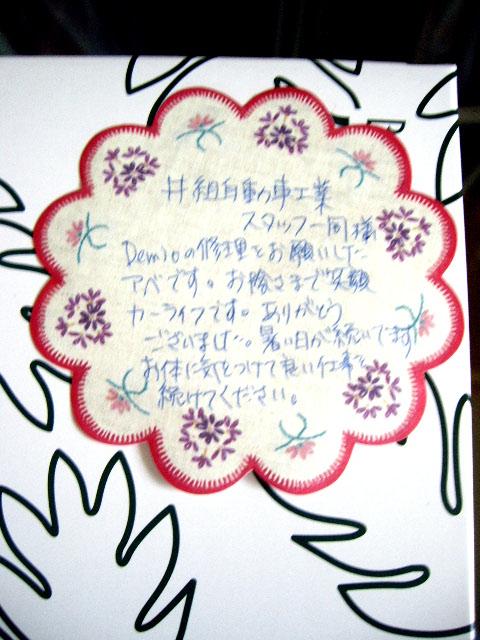 井組自動車工業
スタッフ一同様
Demioの修理をお願いした
アベです。お陰さまで笑顔
カーライフです。ありがとう
ございました。暑い日が続いてます
お体に気をつけて良い仕事を
続けてください。